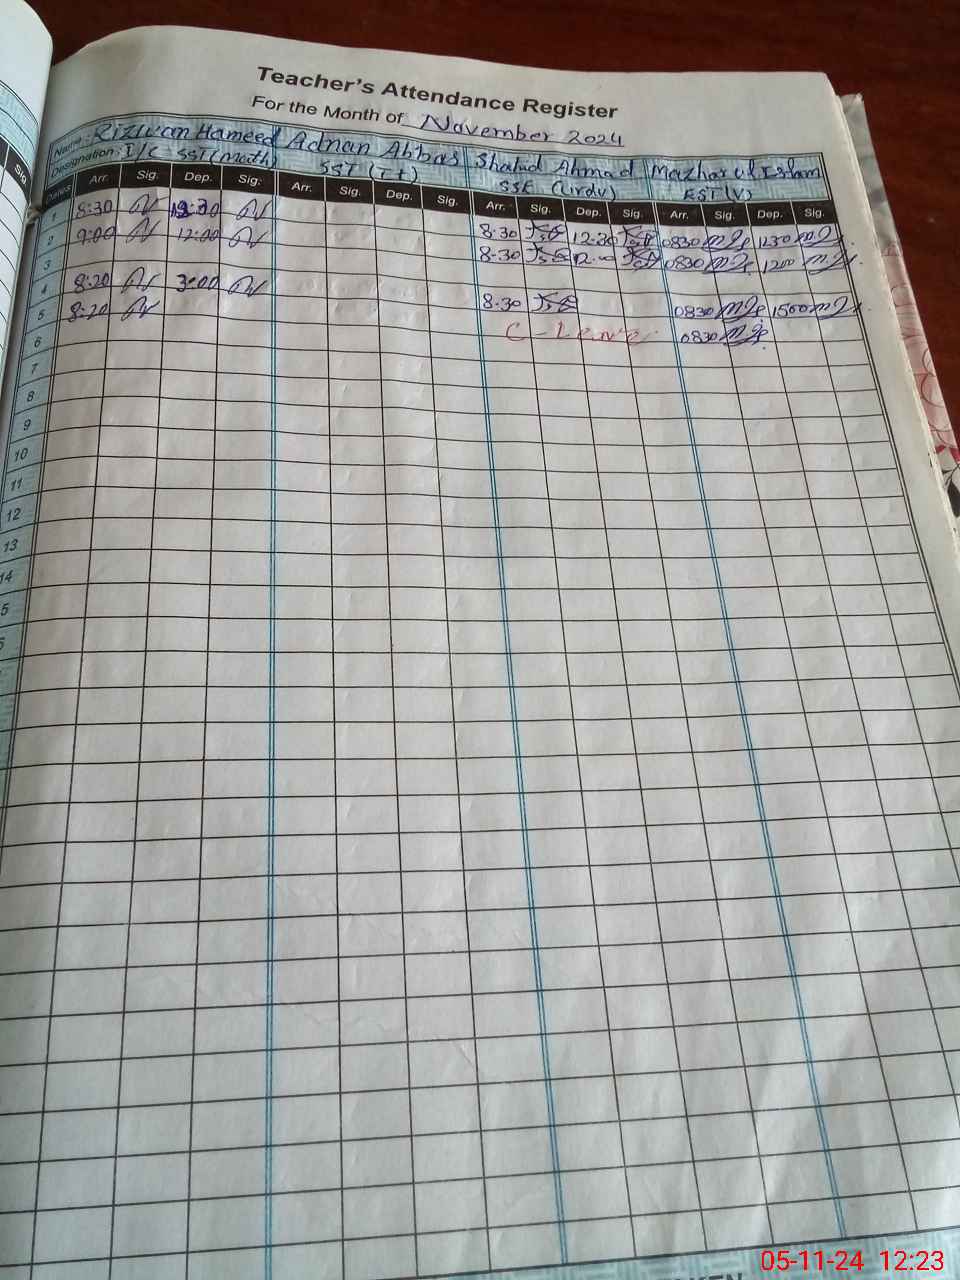 Teacher's Attendance Register
For the Month of November 2024
Name: Rizwan Hameed Adnan Abbas Shahid Ahmad Mazhar ul Islam
Designation: I/C SST (Math) SST (IT) SSE (Urdu) EST (V)
Dates Arr. Sig. Dep. Sig. Arr. Sig. Dep. Sig. Arr. Sig. Dep. Sig. Arr. Sig. Dep. Sig.
1 8:30 12:30 8:30 12:30 0830 1230
2 9:00 12:00 8-30 12:00 0830 1200
3
4 8:20 3:00 8:30 0830 1500
5 8:20 C-Leave 0830
6
7
8
9
10
11
12
13
14
5
Sig
05-11-24 12:23